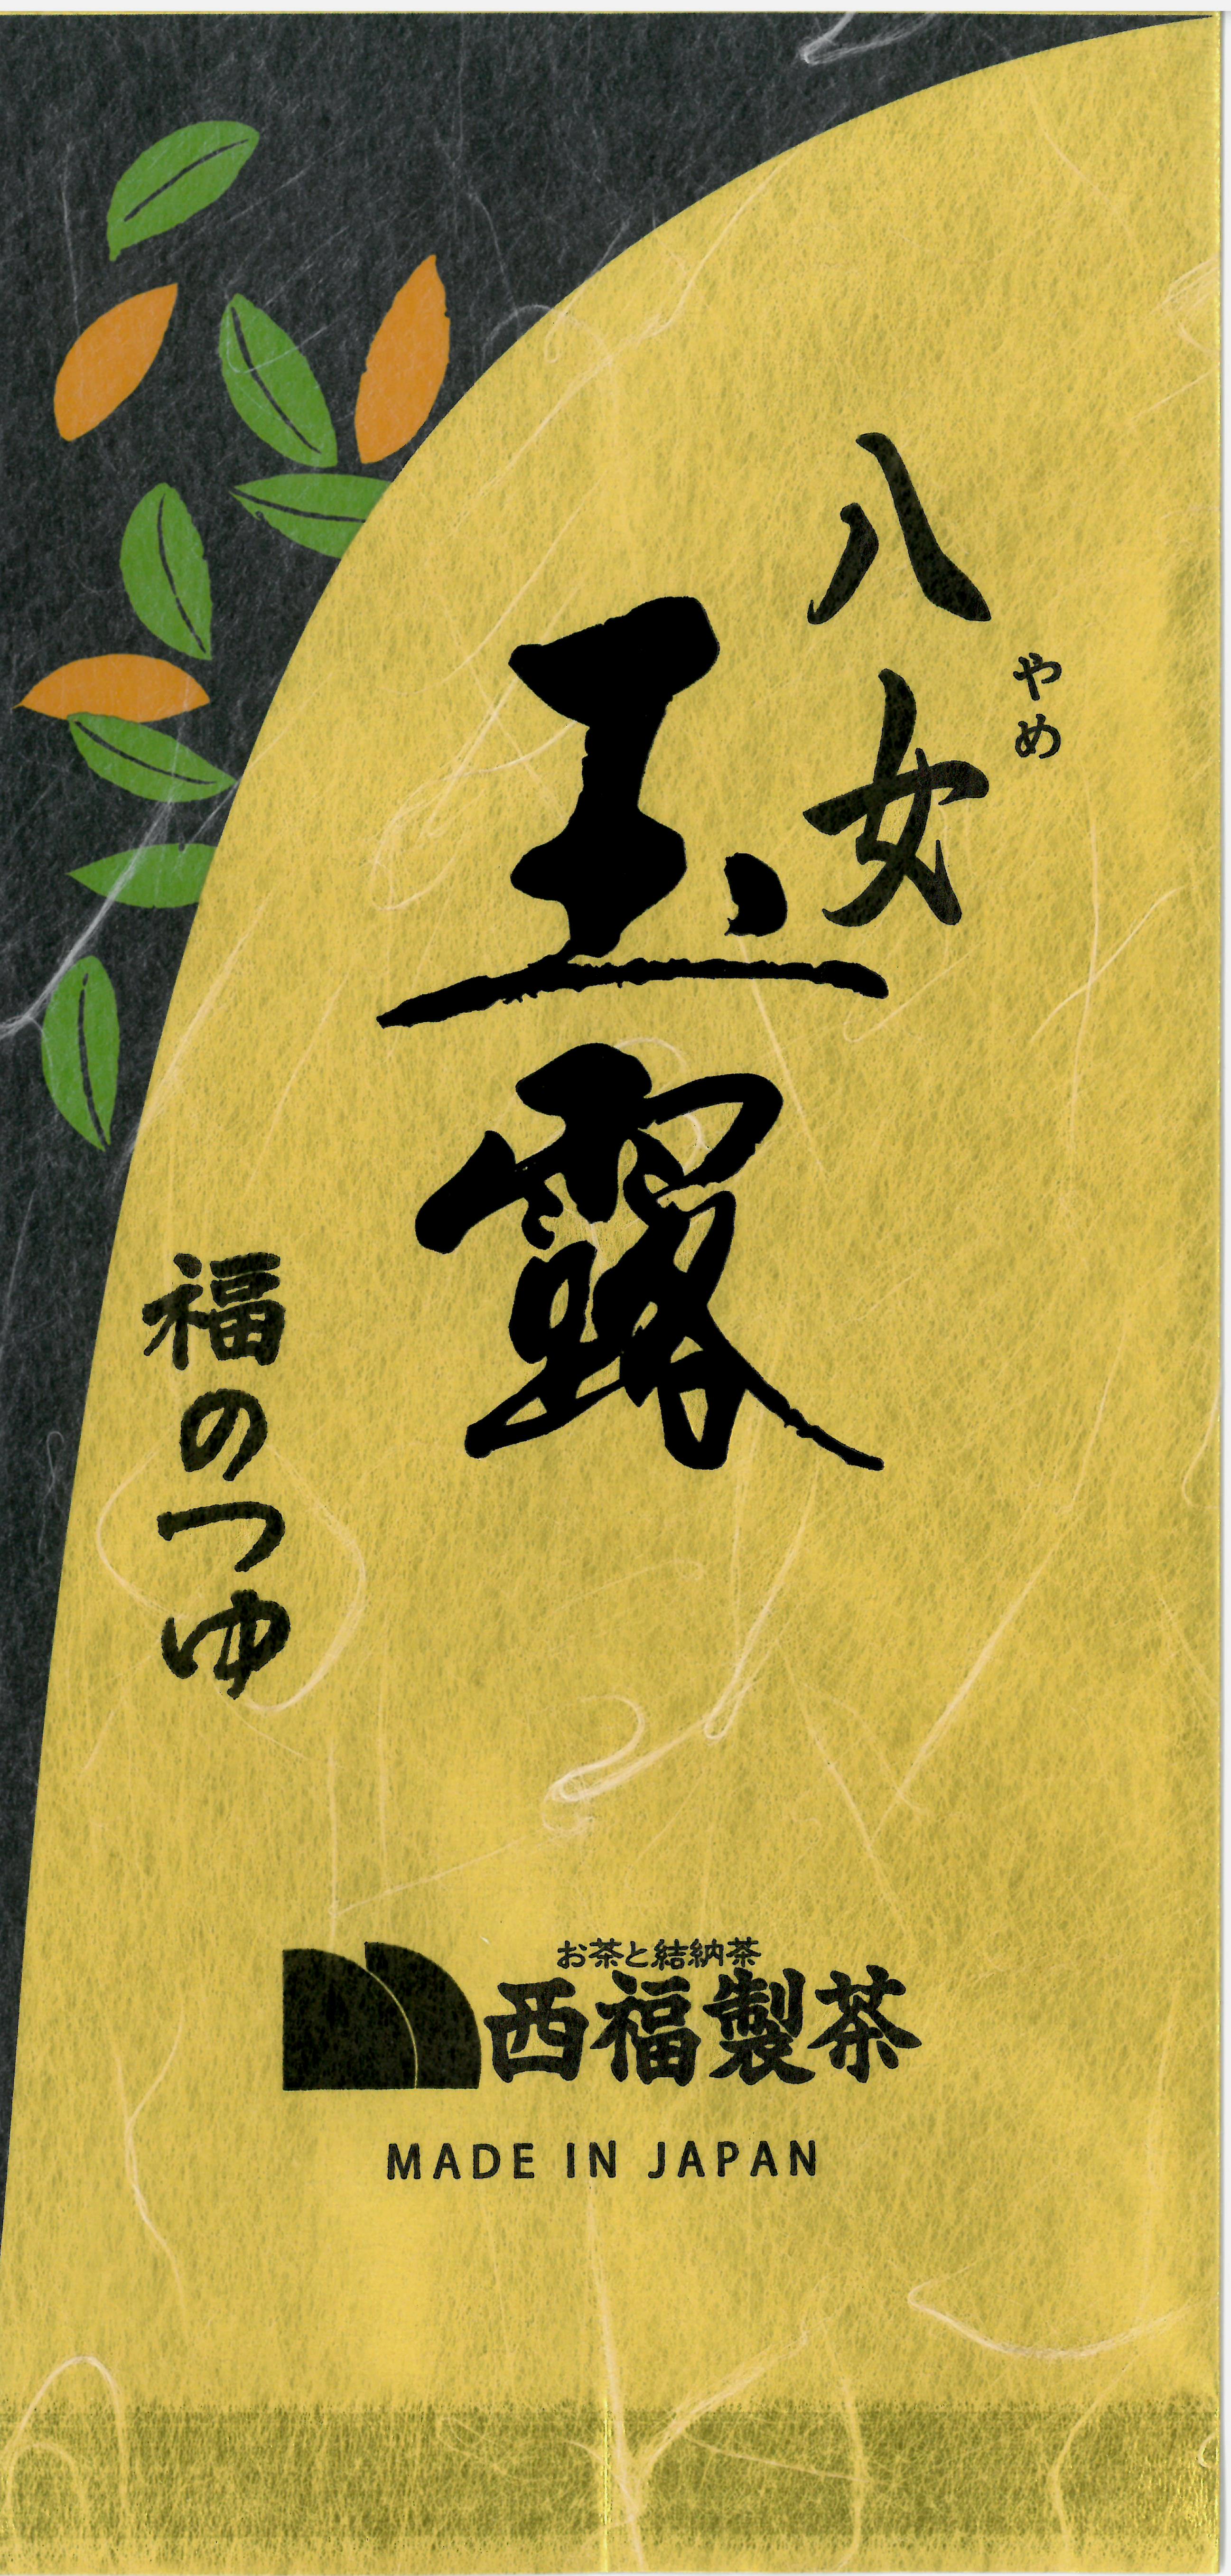 八女
やめ
玉露
福のつゆ
お茶と結納茶
西福製茶
MADE IN JAPAN